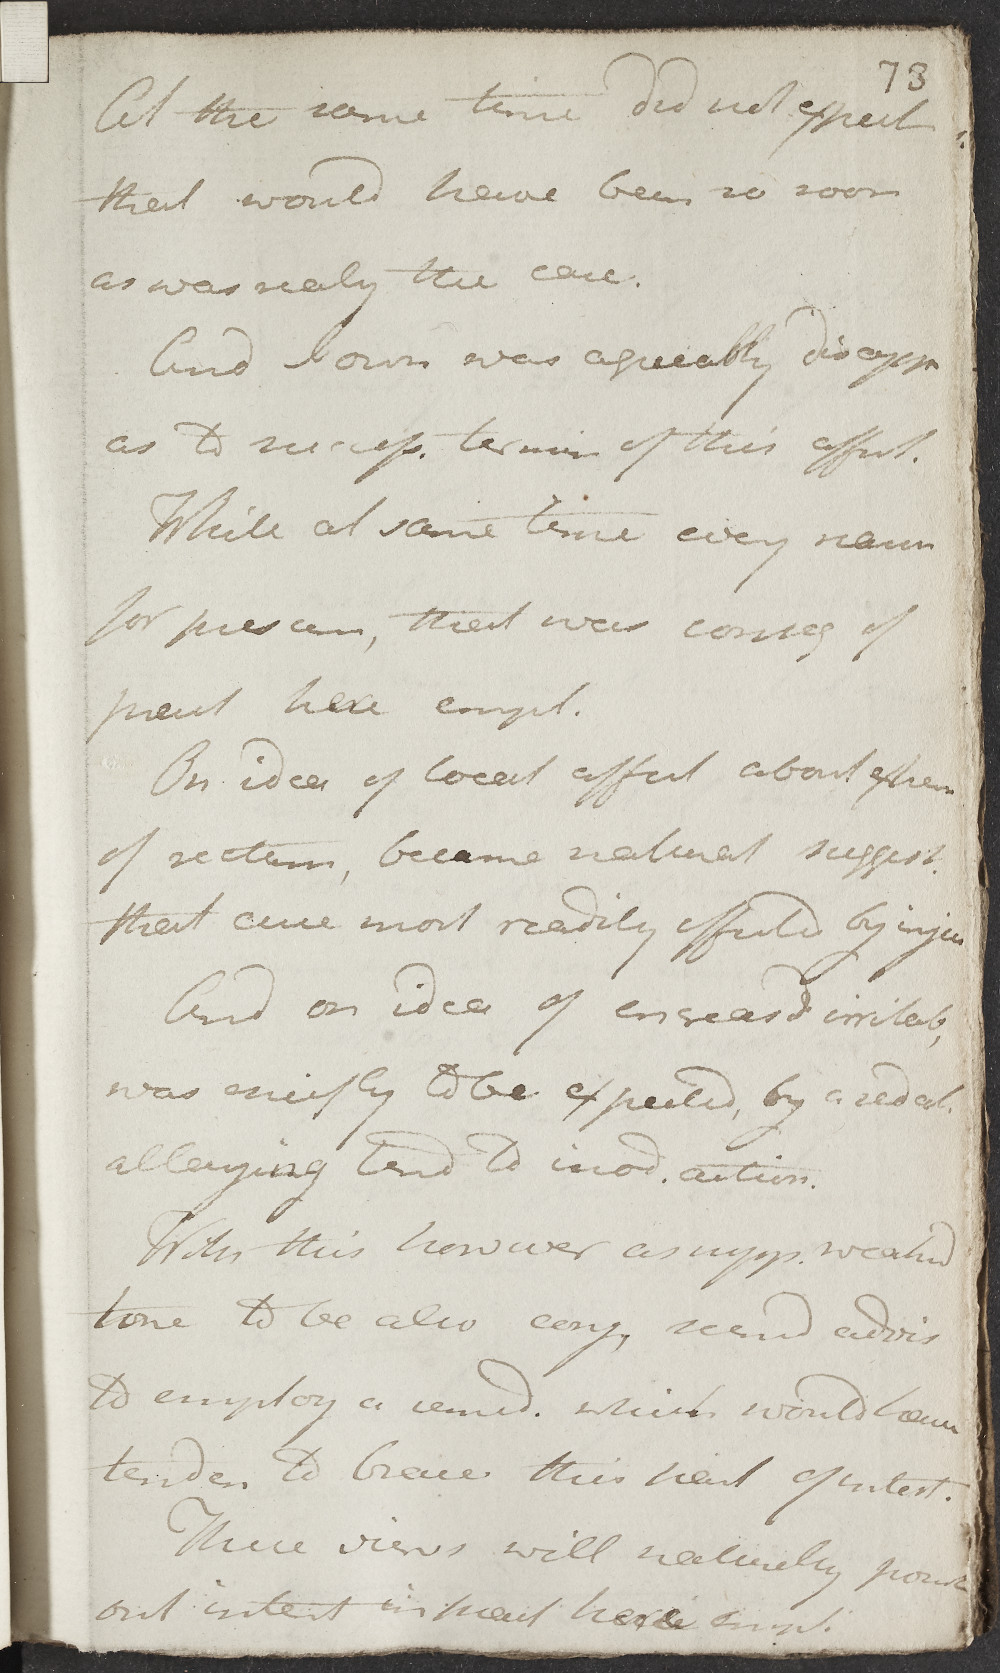 73
At the same time did not expect
that would have been so soon
as was realy the case.
And I own was agreeably disapp
as to success. termin of this affect.
While at same time every
for  that was  of
 here empl.
On idea of local affect about
of rectum, became natural suggest.
that cure most readily effected by injec
And on idea of encreasd irritab,
was chiefly to be expected, by a sedat.
allaying tend to inod. action.
With this however as supp. weakd
tone to be also conj,  advis
to employ a remed. which would have
tenden to brace this part of intest.
These views will naturaly point
out intent in treat here empl.